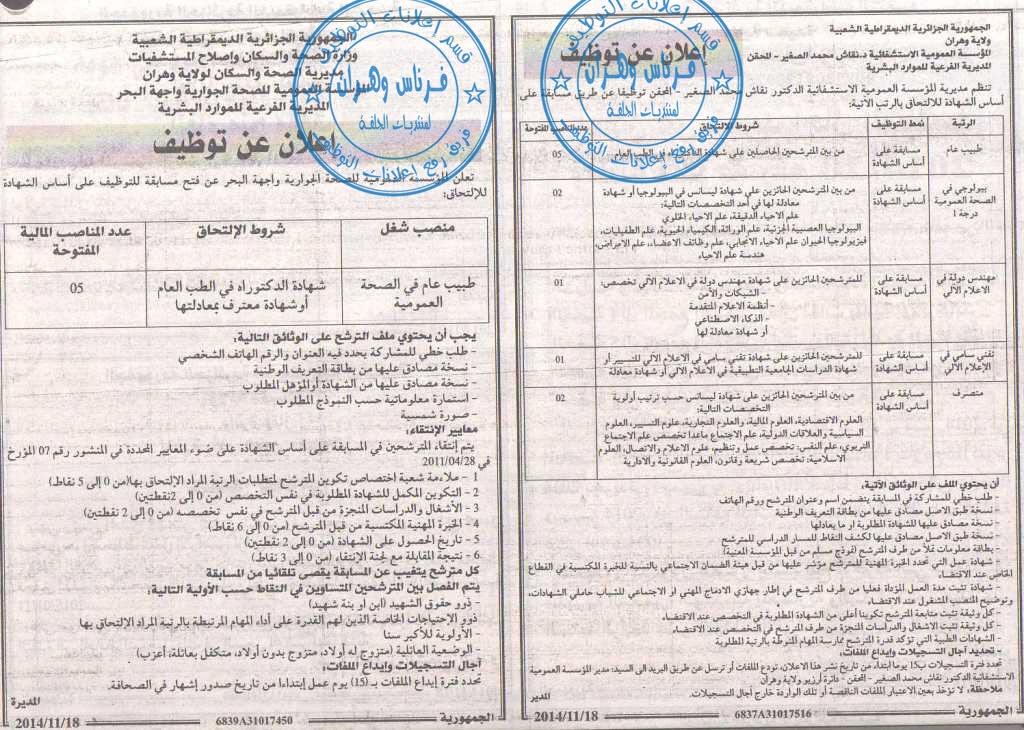 الجمهورية الجزائرية الديمقراطية الشعبية
ولاية وهران
المؤسسة العمومية الاستشفائية د.نقاش محمد الصغير - المحقن
المديرية الفرعية للموارد البشرية
إعلان عن توظيف
تنظم مديرية المؤسسة العمومية الاستشفائية الدكتور نقاش محمد الصغير - المحقن توظيفا عن طريق مسابقة على
أساس الشهادة للالتحاق بالرتب الآتية:
الرتبة
نمط التوظيف
شروط الإلتحاق
المفتوحة
طبيب عام
مسابقة على أساس الشهادة
من بين المترشحين الحاصلين على شهادة في الطب العام
05
بيولوجي في الصحة العمومية درجة 1
مسابقة على أساس الشهادة
من بين المترشحين الحائزين على شهادة ليسانس في البيولوجيا أو شهادة
معادلة لها في أحد التخصصات التالية:
علم الاحياء الدقيقة، علم الاحياء الخلوي
البيولوجيا العصبية الجزئية، علم الوراثة، الكيمياء الحيوية، علم الطفيليات،
فيزيولوجيا الحيوان علم الاحياء الانجابي، علم وظائف الاعضاء، علم الامراض،
هندسة علم الاحياء
02
مهندس دولة في الاعلام الآلي
مسابقة على أساس الشهادة
للمترشحين الحائزين على شهادة مهندس دولة في الاعلام الآلي تخصص:
- الشبكات والأمن
- أنظمة الاعلام المتقدمة
- الذكاء الاصطناعي
أو شهادة معادلة لها
01
تقني سامي في الإعلام الآلي
مسابقة على أساس الشهادة
للمترشحين الحائزين على شهادة تقني سامي في الاعلام الآلي للتسيير أو
شهادة الدراسات الجامعية التطبيقية في الاعلام الآلي أو شهادة معادلة
01
متصرف
مسابقة على أساس الشهادة
من بين المترشحين الحائزين على شهادة ليسانس حسب ترتيب أولوية
التخصصات التالية:
العلوم الاقتصادية، العلوم المالية، والعلوم التجارية، علوم التسيير، العلوم
السياسية والعلاقات الدولية، علم الاجتماع ماعدا تخصص علم الاجتماع
التربوي، علم النفس: تخصص عمل وتنظيم، علوم الاعلام والاتصال، العلوم
الاسلامية: تخصص شريعة وقانون، العلوم القانونية والادارية
02
أن يحتوي الملف على الوثائق الآتية:
- طلب خطي للمشاركة في المسابقة يتضمن اسم وعنوان المترشح ورقم الهاتف
- نسخة طبق الاصل مصادق عليها من بطاقة التعريف الوطنية
- نسخة طبق الاصل مصادق عليها للشهادة المطلوبة او ما يعادلها
- نسخة طبق الاصل مصادق عليها لكشف النقاط للمسار الدراسي للمترشح
- بطاقة معلومات تملأ من طرف المترشح (نموذج مسلم من قبل المؤسسة المعنية)
- شهادة عمل التي تحدد الخبرة المهنية للمترشح مؤشر عليها من قبل هيئة الضمان الاجتماعي بالنسبة للخبرة المكتسبة في القطاع
الخاص عند الاقتضاء
- شهادة تثبت مدة العمل المؤداة فعليا من طرف المترشح في إطار جهازي الادماج المهني او الاجتماعي للشباب حاملي الشهادات،
وتوضيح المنصب المشغول عند الاقتضاء
- كل وثيقة تثبت متابعة المترشح تكوينا أعلى من الشهادة المطلوبة في التخصص عند الاقتضاء
- كل وثيقة تثبت الاشغال والدراسات المنجزة من طرف المترشح في التخصص عند الاقتضاء
- الشهادات الطبية التي تؤكد قدرة المترشح بممارسة المهام المنوطة بالرتبة المطلوبة
- تحديد آجال التسجيلات وإيداع الملفات:
تحدد فترة التسجيلات ب15 يوما ابتداء من تاريخ نشر هذا الاعلان، تودع الملفات أو ترسل عن طريق البريد الى السيد: مدير المؤسسة العمومية
الاستشفائية الدكتور نقاش محمد الصغير - المحقن - دائرة أرزيو ولاية وهران
ملاحظة: لا تؤخذ بعين الاعتبار الملفات الناقصة أو تلك الواردة خارج آجال التسجيلات.
المدير
الجمهورية
6837A31017516
2014/11/18
الجمهورية الجزائرية الديمقراطية الشعبية
وزارة الصحة والسكان وإصلاح المستشفيات
مديرية الصحة والسكان لولاية وهران
المؤسسة العمومية للصحة الجوارية واجهة البحر
المديرية الفرعية للموارد البشرية
إعلان عن توظيف
تعلن المؤسسة العمومية للصحة الجوارية واجهة البحر عن فتح مسابقة للتوظيف على أساس الشهادة
للإلتحاق:
منصب شغل
شروط الإلتحاق
عدد المناصب المالية المفتوحة
طبيب عام في الصحة العمومية
شهادة الدكتوراه في الطب العام
أو شهادة معترف بمعادلتها
05
يجب أن يحتوي ملف الترشح على الوثائق التالية:
- طلب خطي للمشاركة يحدد فيه العنوان والرقم الهاتف الشخصي
- نسخة مصادق عليها من بطاقة التعريف الوطنية
- نسخة مصادق عليها من الشهادة أو المؤهل المطلوب
- استمارة معلوماتية حسب النموذج المطلوب
- صورة شمسية
معايير الإنتقاء:
يتم إنتقاء المترشحين في المسابقة على أساس الشهادة على ضوء المعايير المحددة في المنشور رقم 07 المؤرخ
في 2011/04/28
1 - ملاءمة شعبة اختصاص تكوين المترشح لمتطلبات الرتبة المراد الإلتحاق بها (من 0 إلى 5 نقاط)
2 - التكوين المكمل للشهادة المطلوبة في نفس التخصص (من 0 إلى 2نقطتين)
3 - الأشغال والدراسات المنجزة من قبل المترشح في نفس تخصصه (من 0 إلى 2 نقطتين)
4 - الخبرة المهنية المكتسبة من قبل المترشح (من 0 إلى 6 نقاط)
5 - تاريخ الحصول على الشهادة (من 0 إلى 2 نقطتين)
6 - نتيجة المقابلة مع لجنة الإنتقاء (من 0 إلى 3 نقاط)
كل مترشح يتغيب عن المسابقة يقصى تلقائيا من المسابقة
يتم الفصل بين المترشحين المتساوين في النقاط حسب الأولية التالية:
- ذوو حقوق الشهيد (ابن أو بنة شهيد)
- ذوو الإحتياجات الخاصة الذين لهم القدرة على أداء المهام المرتبطة بالرتبة المراد الإلتحاق بها
- الأولوية للأكبر سنا
- الوضعية العائلية (متزوج له أولاد، متزوج بدون أولاد، متكفل بعائلة، أعزب)
آجال التسجيلات وإيداع الملفات:
تحدد فترة إيداع الملفات بـ (15) يوم عمل إبتداءا من تاريخ صدور إشهار في الصحافة.
المديرة
الجمهورية
6839A31017450
2014/11/18
قسم إعلانات التوظيف
فرناس وهران
لمنتديات الجلفة
فريق رفع إعلانات التوظيف
قسم إعلانات التوظيف
فرناس وهران
لمنتديات الجلفة
فريق رفع إعلانات التوظيف